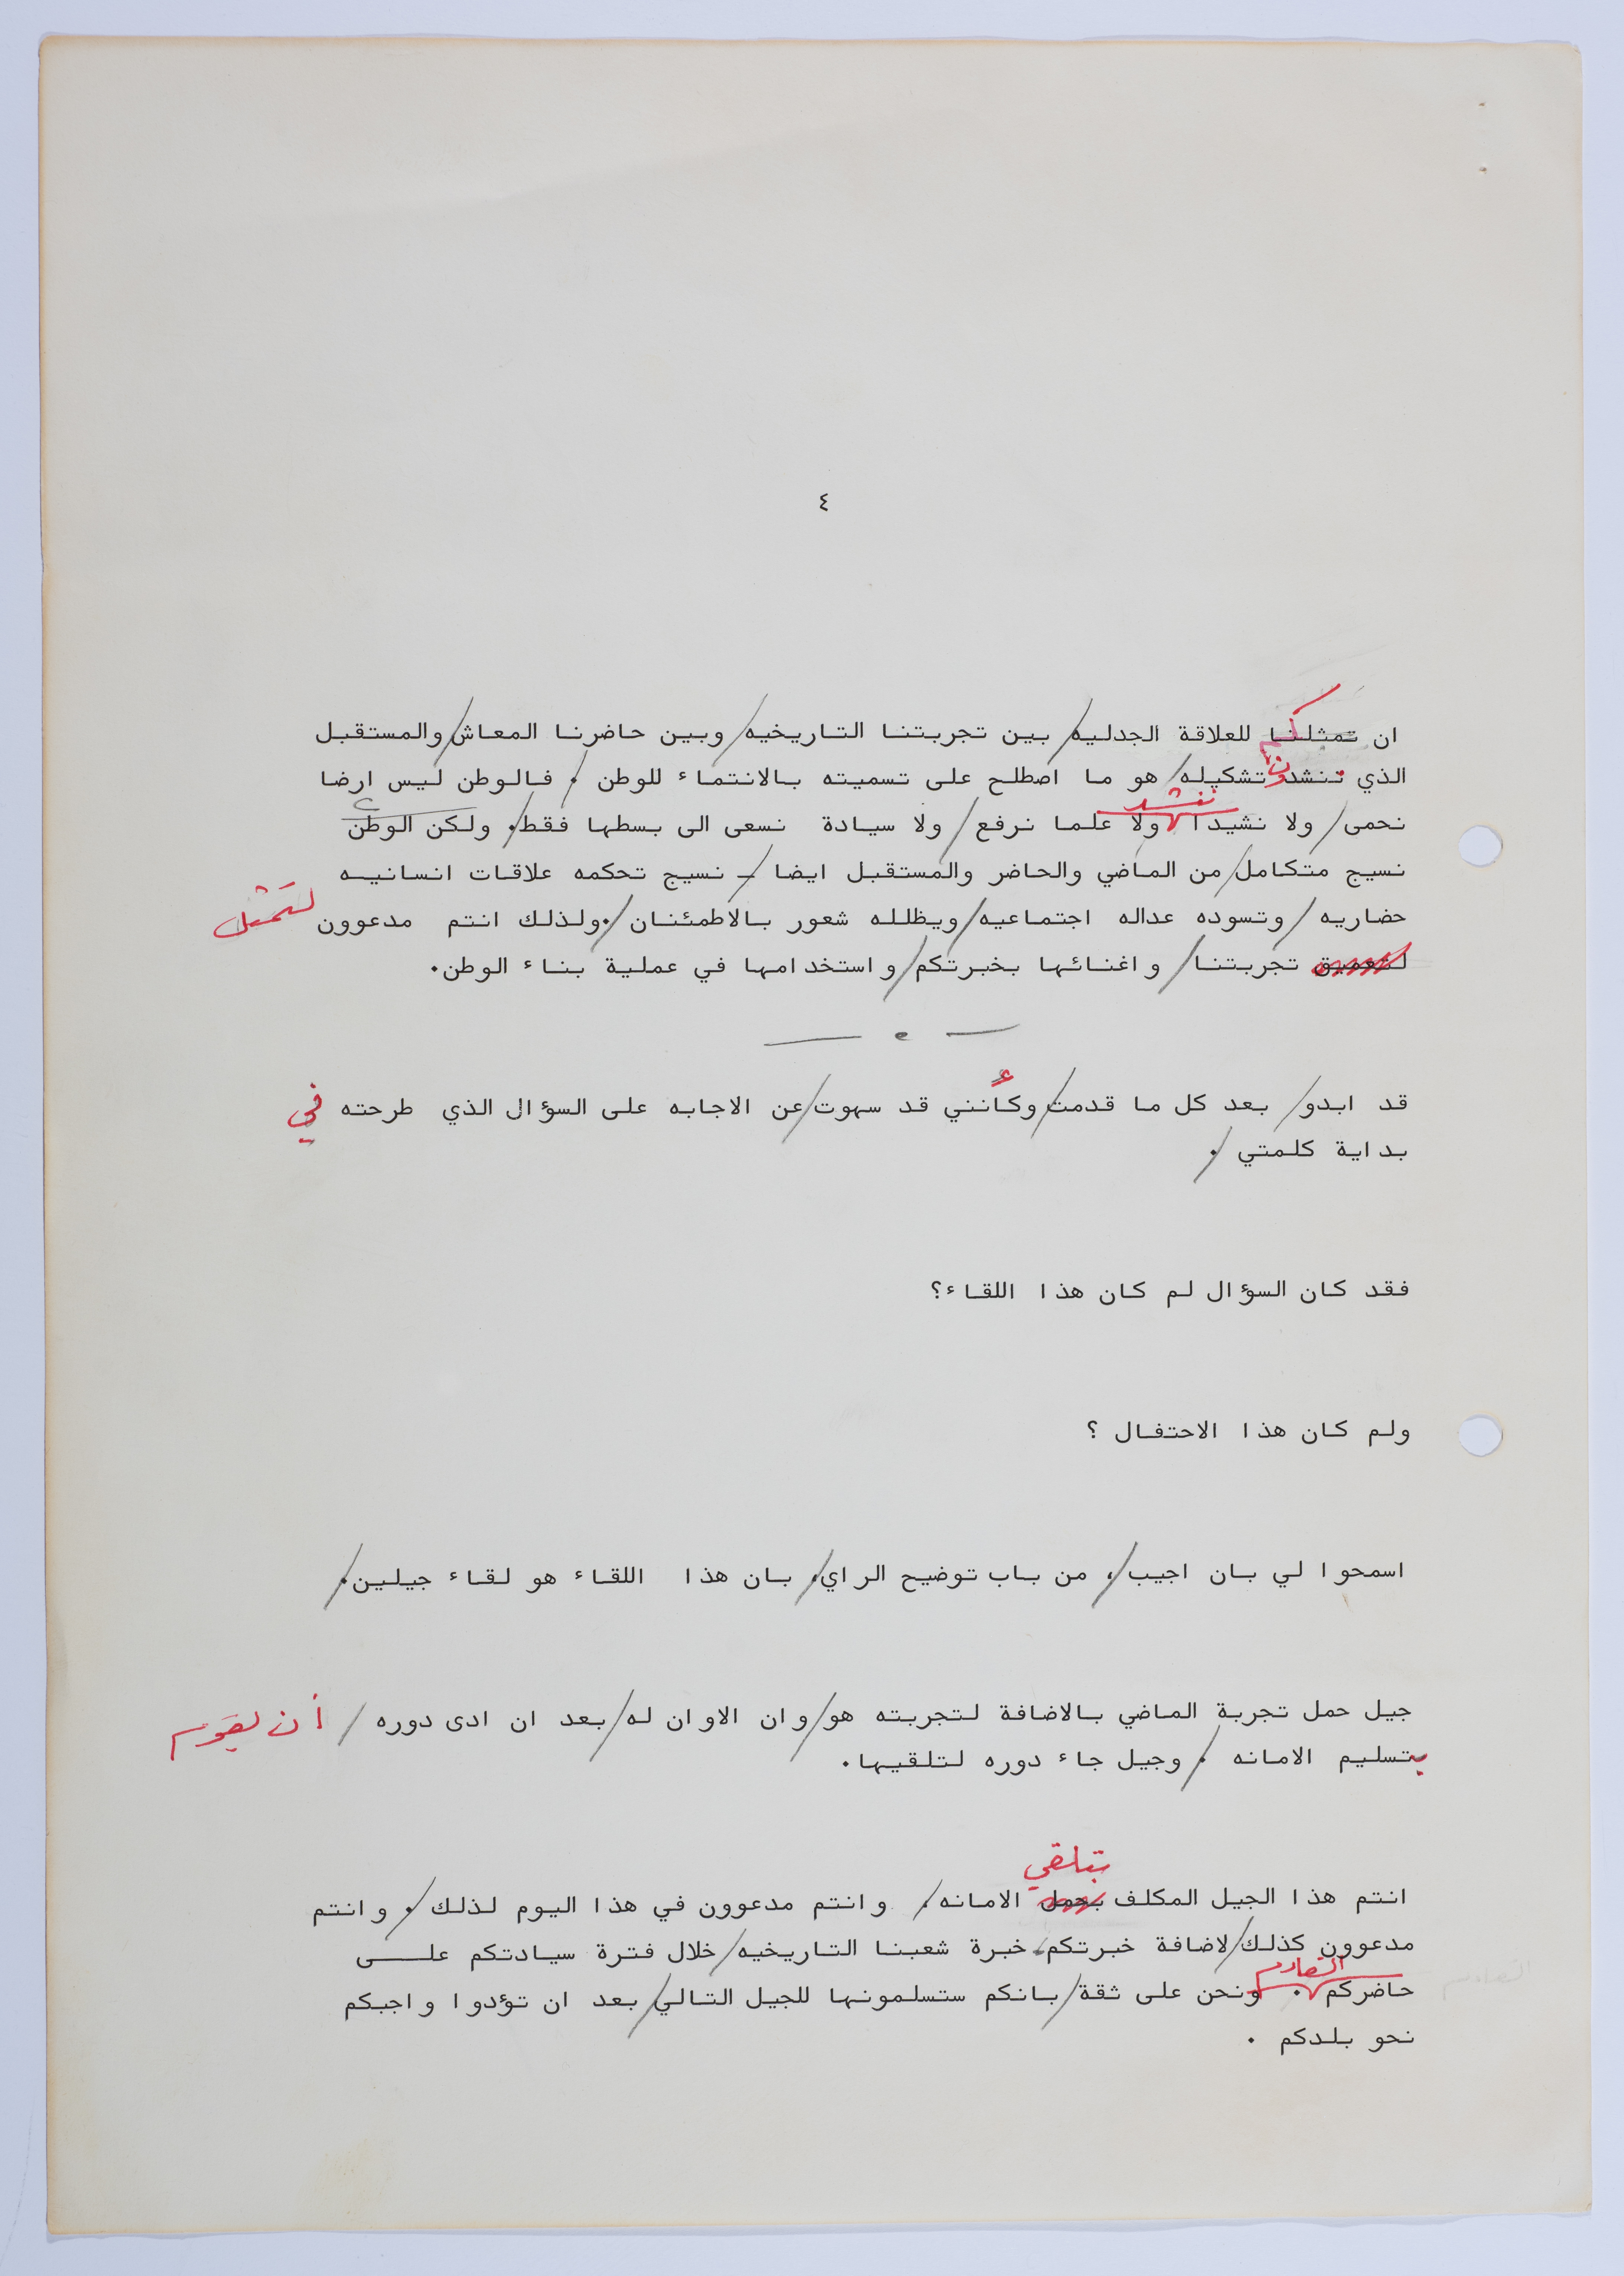 ٤
ان تمثلنا للعلاقة الجدليه/ بين تجربتنا التاريخيه/ وبين حاضرنا المعاش/ والمستقبل
الذي تنشدون تشكيله/ هو ما اصطلح على تسميته بالانتماء للوطن /. فالوطن ليس ارضا
ننشد
نحمى/ ولا نشيدا ولا علما نرفع/ ولا سيادة نسعى الى بسطها فقط/. ولكن الوطن
نسيج متكامل/ من الماضي والحاضر والمستقبل ايضا /ـ نسيج تحكمه علاقات انسانيه
حضاريه/ وتسوده عداله اجتماعيه/ ويظلله شعور بالاطمئنان/. ولذلك انتم مدعوون لتمثل
لتعميق تجربتنا/ واغنائها بخبرتكم/ واستخدامها في عملية بناء الوطن.
قد ابدو/ بعد كل ما قدمت/ وكأنني قد سهوت/ عن الاجابه على السؤال الذي طرحته في
بداية كلمتي /.
فقد كان السؤال لم كان هذا اللقاء؟
ولم كان هذا الاحتفال ؟
اسمحوا لي بان اجيب/، من باب توضيح الراي/، بان هذا اللقاء هو لقاء جيلين/.
جيل حمل تجربة الماضي بالاضافة لتجربته هو/ وان الاوان له/ بعد ان ادى دوره / أن يقوم
بتسليم الامانه /. وجيل جاء دوره لتلقيها.
بتلقي
انتم هذا الجيل المكلف بحمل الامانه/، وانتم مدعوون في هذا اليوم لذلك /. وانتم
مدعوون كذلك/ لاضافة خبرتكم، خبرة شعبنا التاريخيه/ خلال فترة سيادتكم على
القادم
حاضركم . ونحن على ثقة/ بانكم ستسلمونها للجيل التالي/ بعد ان تؤدوا واجبكم
نحو بلدكم .